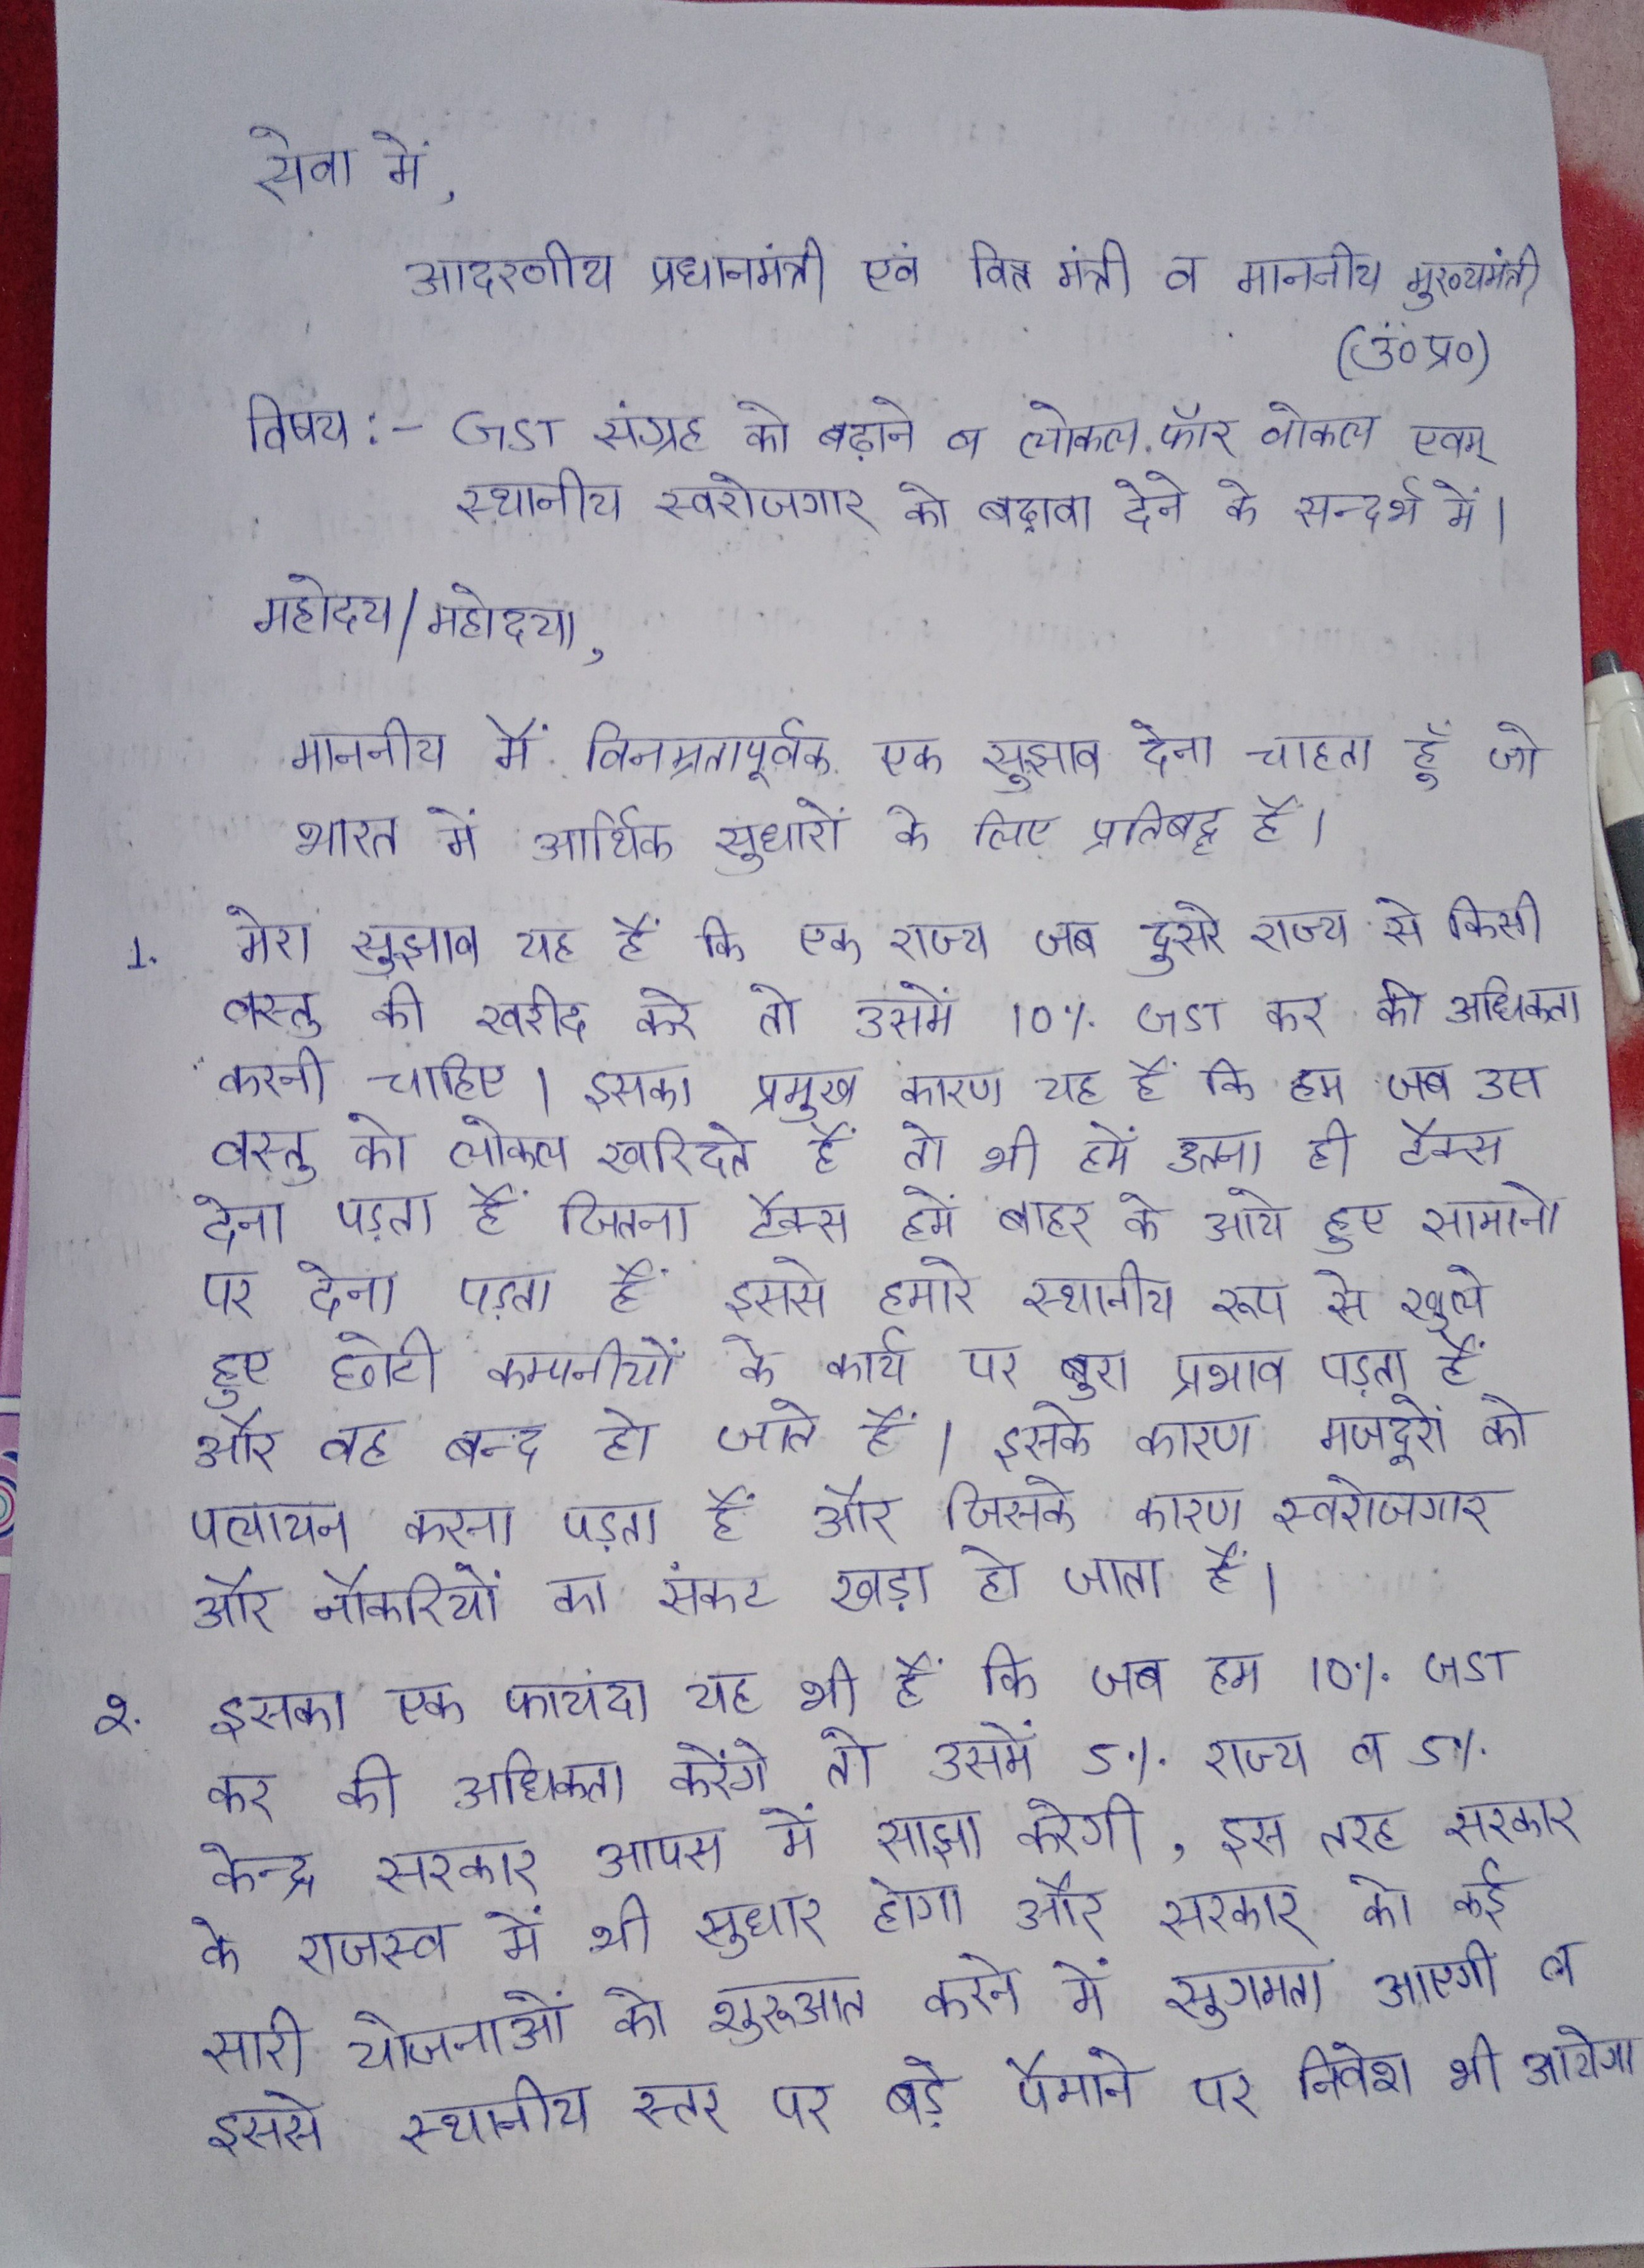 सेवा में,
आदरणीय प्रधानमंत्री एवं वित्त मंत्री व माननीय मुख्यमंत्री
(उ०प्र०)
विषय :- GST संग्रह को बढ़ाने व लोकल फॉर वोकल एवम्
स्थानीय स्वरोजगार को बढ़ावा देने के सन्दर्भ में।
महोदय/महोदया,
माननीय मैं विनम्रतापूर्वक एक सुझाव देना चाहता हूँ जो
भारत में आर्थिक सुधारों के लिए प्रतिबद्ध हैं।
1. मेरा सुझाव यह हैं कि एक राज्य जब दुसरे राज्य से किसी
वस्तु की खरीद करे तो उसमें 10% GST कर की अधिकता
करनी चाहिए। इसका प्रमुख कारण यह हैं कि हम जब उस
वस्तु को लोकल खरिदते हैं तो भी हमें उतना ही टैक्स
देना पड़ता हैं जितना टैक्स हमें बाहर के आये हुए सामानो
पर देना पड़ता हैं इससे हमारे स्थानीय रूप से खुले
हुए छोटी कम्पनीयों के कार्य पर बुरा प्रभाव पड़ता हैं
और वह बन्द हो जाते हैं। इसके कारण मजदूरों को
पलायन करना पड़ता हैं और जिसके कारण स्वरोजगार
और नौकरियों का संकट खड़ा हो जाता हैं।
2. इसका एक फायदा यह भी हैं कि जब हम 10% GST
कर की अधिकता करेंगे तो उसमें 5% राज्य व 5%
केन्द्र सरकार आपस में साझा करेगी, इस तरह सरकार
के राजस्व में भी सुधार होगा और सरकार को कई
सारी योजनाओं को शुरूआत करने में सुगमता आएगी व
इससे स्थानीय स्तर पर बड़े पैमाने पर निवेश भी आयेगा